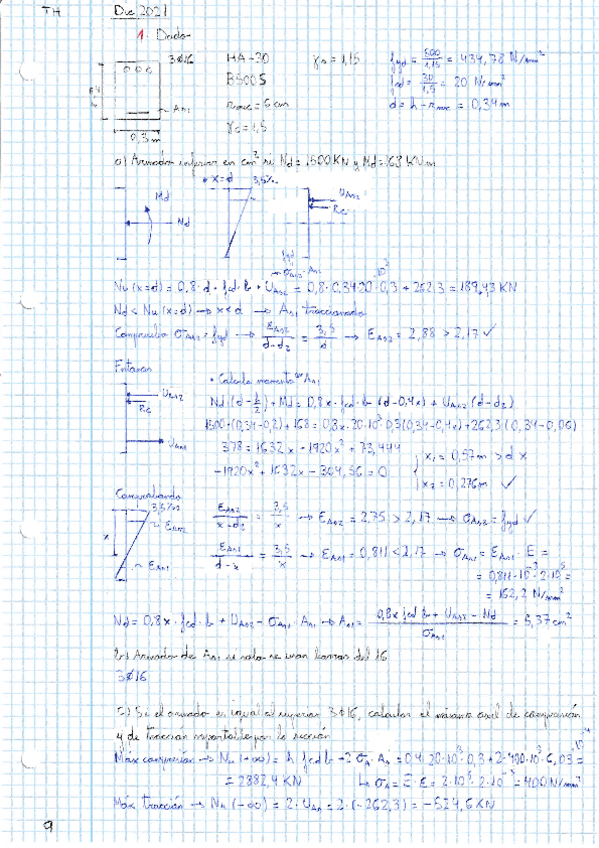 TH Dic 2021
1. Dado
3Ø16 HA-30 γs = 1,15 fyd = 500/1,15 = 434,78 N/mm²
B500S fcd = 30/1,5 = 20 N/mm²
An1 rmec = 6 cm d = h - rmec = 0,34 m
0,3 m γc = 1,5
a) Armadura inferior en cm² si Nd = 1500 KN y Md = 168 KN m
• x = d 3,5‰ UAs2
Md Rc
Nd
fyd
Nu (x=d) = 0,8 · d · fcd · b + UAs2 = 0,8 · 0,34 · 20 · 10³ · 0,3 + 262,3 = 1894,3 KN
Nd < Nu (x=d) → x < d → As1 traccionado
Comprueba σAs2 = fyd → εAs2/(d-d2) = 3,5/d → εAs2 = 2,88 > 2,17 ✓
Entonces
UAs2 • Calculo momento en As1
Rc Nd · (d - h/2) + Md = 0,8x · fcd · b · (d-0,4x) + UAs2 (d-d2)
UAs1 1500 · (0,34-0,2) + 168 = 0,8x · 20 · 10³ · 0,3 (0,34-0,4x) + 262,3 (0,34-0,06)
378 = 1632x - 1920x² + 73,444
x1 = 0,57m > d x
-1920x² + 1632x - 304,56 = 0
x2 = 0,276m ✓
Comprobando
3,5‰ εAs2/(x-d2) = 3,5/x → εAs2 = 2,75 > 2,17 → σAs2 = fyd ✓
εAs2
x εAs1/(d-x) = 3,5/x → εAs1 = 0,811 < 2,17 → σAs1 = εAs1 · E =
εAs1 = 0,811 · 10⁻³ · 2 · 10⁵ =
= 162,2 N/mm²
Nd = 0,8x · fcd · b + UAs2 - σAs1 · As1 → As1 = (0,8x fcd b + UAs2 - Nd)/σAs1 = 5,37 cm²
b) Armadura de As1 si solo se usan barras del 16
3Ø16
c) Si el armado es igual al superior, 3Ø16, calcular el máximo axil de compresión
y de tracción soportable por la sección
Máx compresión → Nu (+∞) = h fcd b + 2 σA · As = 0,4 · 20 · 10³ · 0,3 + 2 · 400 · 10³ · 6,03 · 10⁻⁴ =
= 2882,4 KN ↳ σA = E · ε = 2 · 10⁵ · 2 · 10⁻³ = 400 N/mm²
Máx tracción → Nu (-∞) = 2 · UAs = 2 · (-262,3) = -524,6 KN
9